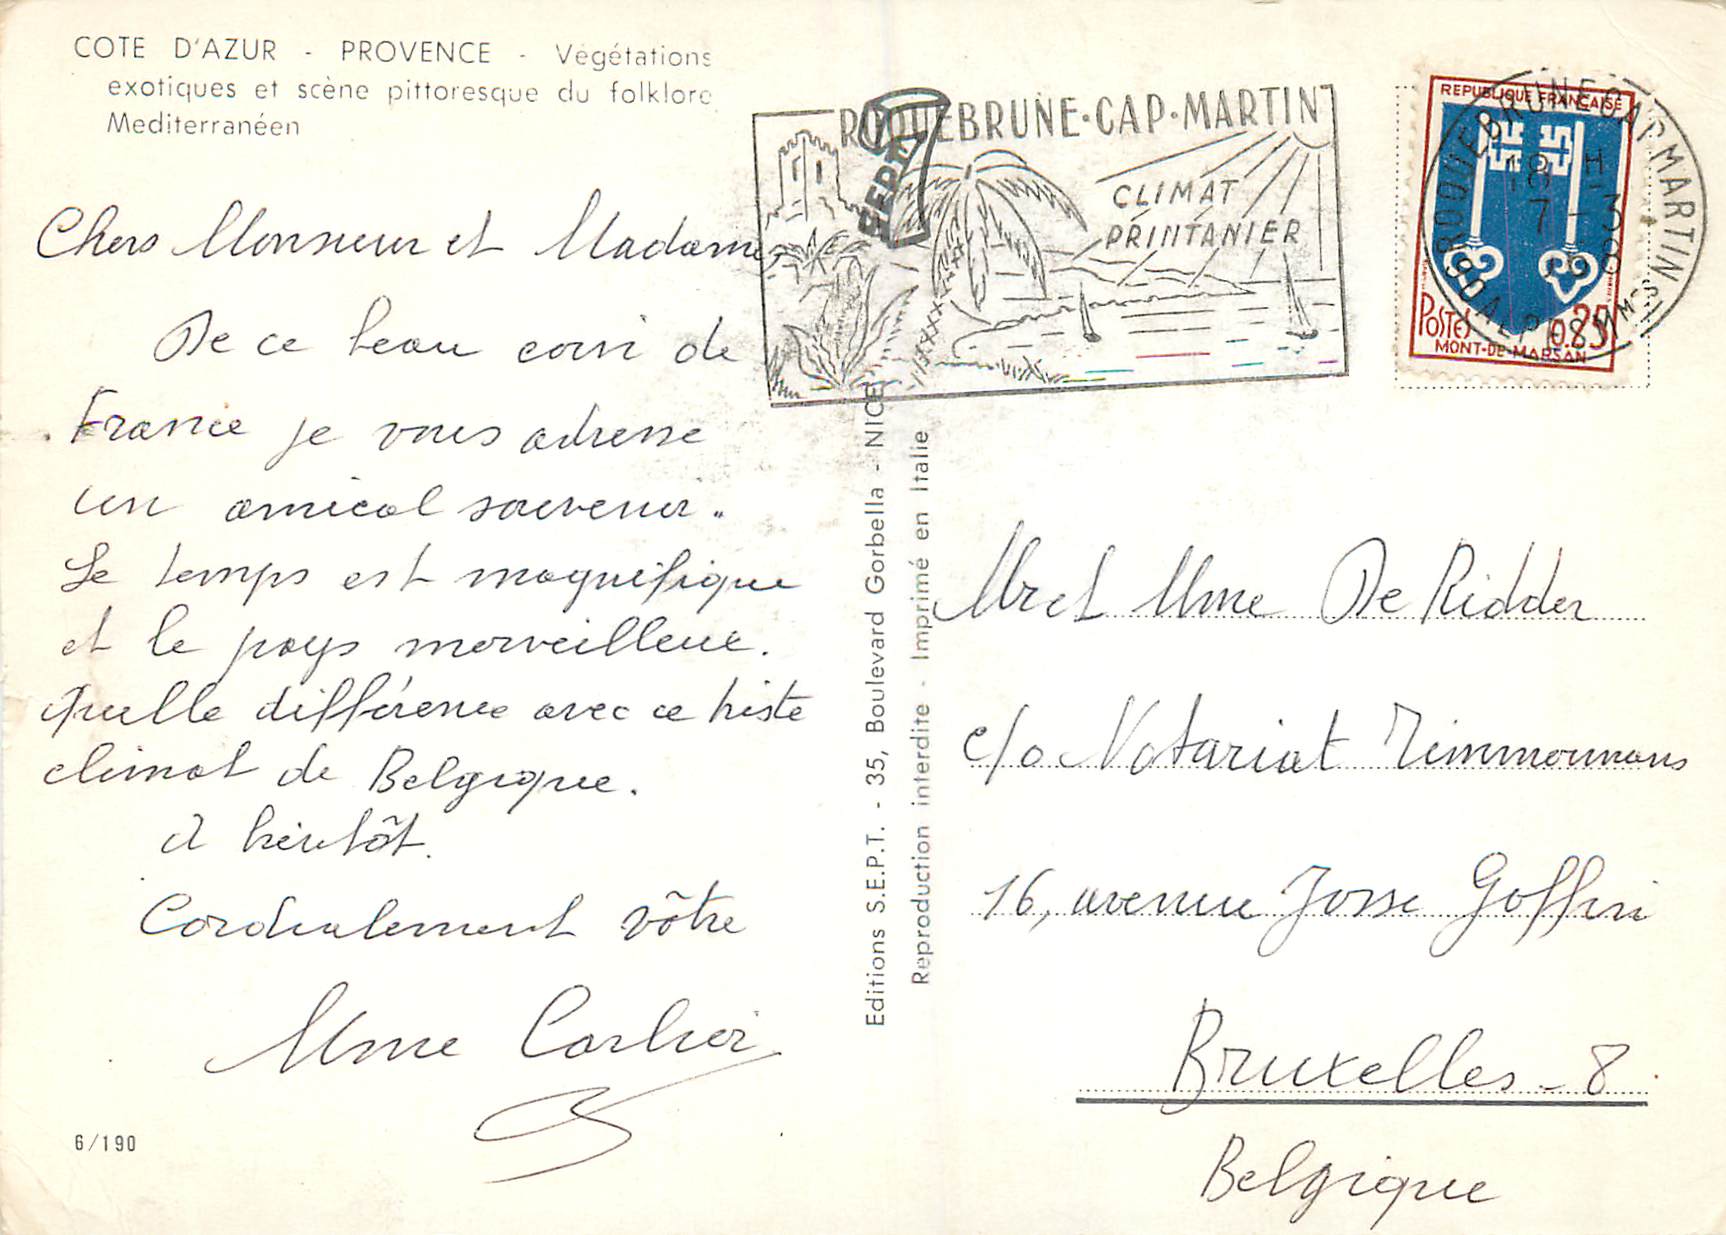 COTE D'AZUR - PROVENCE - Végétations
exotiques et scène pittoresque du folklore
Mediterranéen
Chers Monsieur et Madame,
De ce beau coin de
France je vous adresse
un amical souvenir.
Le temps est magnifique
et le pays merveilleux.
Quelle différence avec ce triste
climat de Belgique.
A bientôt.
Cordialement vôtre
Mme Carlier
6/190
Editions S.E.P.T. - 35, Boulevard Gorbella - NICE
Reproduction interdite - Imprimé en Italie
SEPT
ROQUEBRUNE·CAP·MARTIN
CLIMAT
PRINTANIER
REPUBLIQUE FRANÇAISE
POSTES 0.25
MONT-DE-MARSAN
ROQUEBRUNE CAP MARTIN
18 H
7 - 3
ALPES MMES
Mr et Mme De Ridder
c/o Notariat Timmermans
16, avenue Josse Goffin
Bruxelles - 8
Belgique